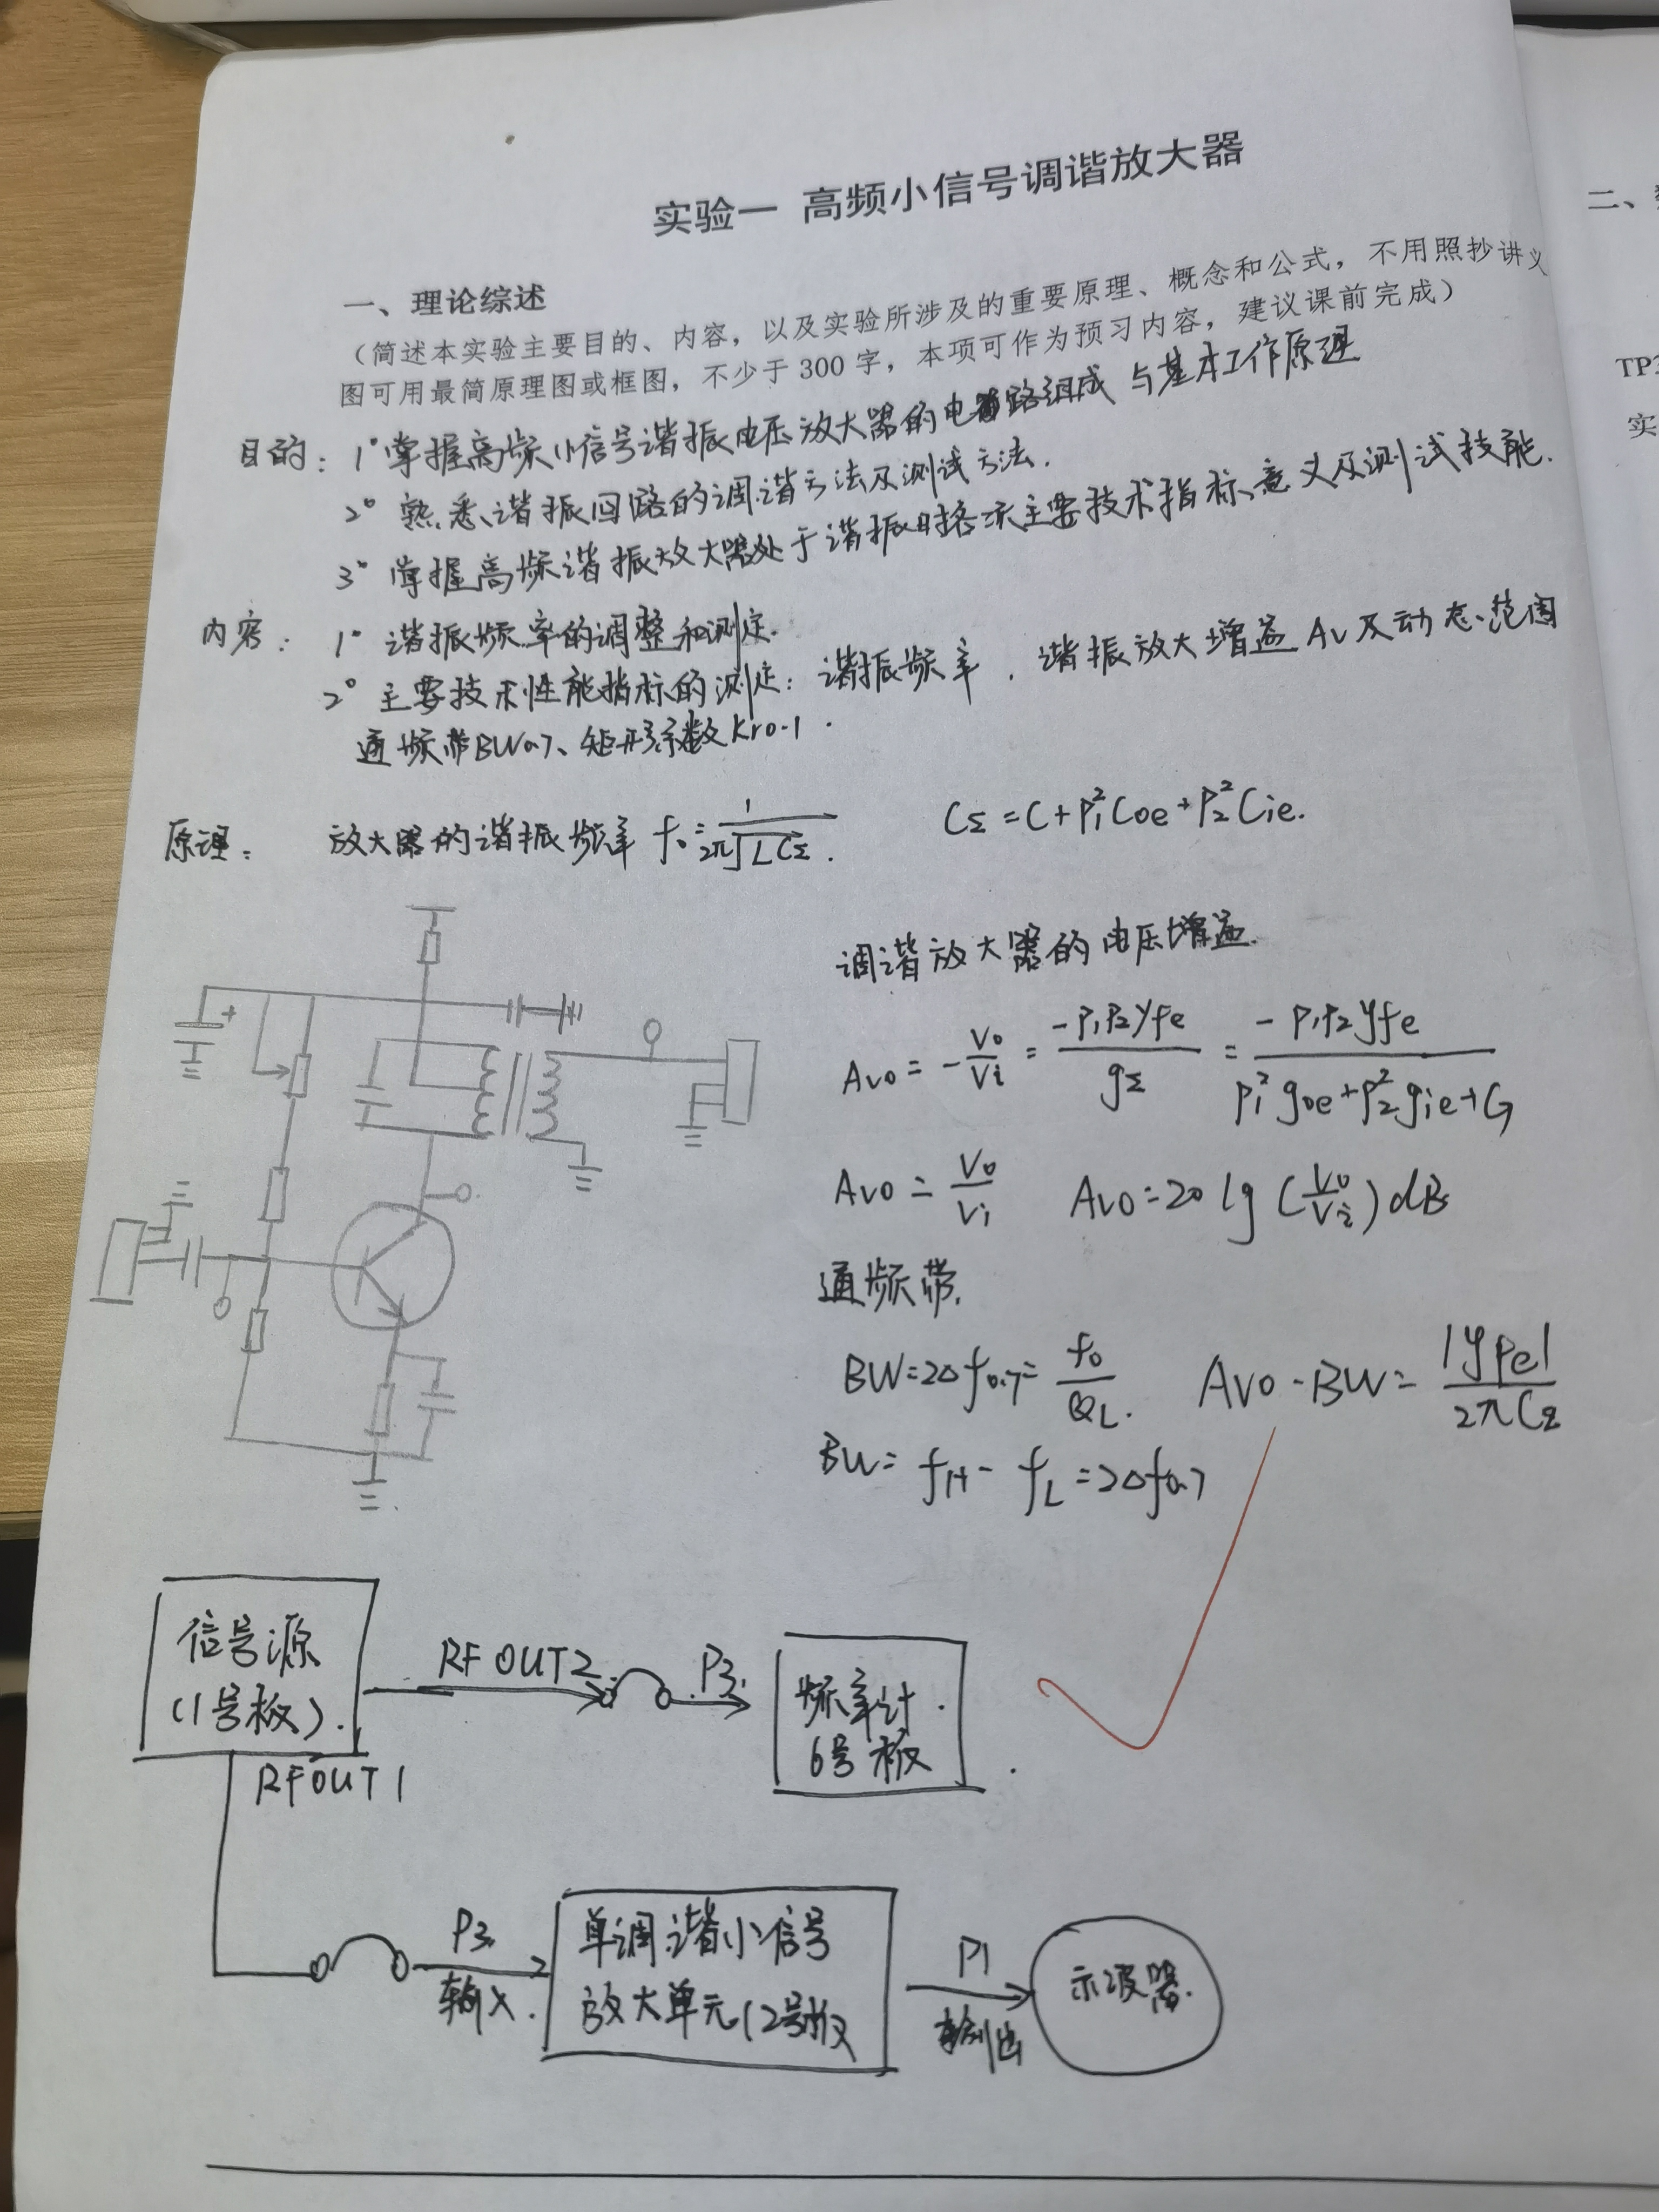 实验一 高频小信号调谐放大器
一、理论综述
（简述本实验主要目的、内容，以及实验所涉及的重要原理、概念和公式，不用照抄讲义
图可用最简原理图或框图，不少于300字，本项可作为预习内容，建议课前完成）
目的：1° 掌握高频小信号谐振电压放大器的电路组成与基本工作原理
2° 熟悉谐振回路的调谐方法及测试方法.
3° 掌握高频谐振放大器处于谐振时各项主要技术指标意义及测试技能.
内容：1° 谐振频率的调整和测定.
2° 主要技术性能指标的测定：谐振频率，谐振放大增益Av及动态范围
通频带BW0.7、矩形系数Kr0.1.
原理：放大器的谐振频率 f₀=1/(2π√(LCΣ)). CΣ=C+P₁²Coe+P₂²Cie.
调谐放大器的电压增益.
Av0=-V0/Vi=-P₁P₂yfe/gΣ=-P₁P₂yfe/(P₁²goe+P₂²gie+G)
Av0=V0/Vi Av0=20lg(V0/Vi)dB
通频带,
BW=2Δf0.7=f0/QL. Av0·BW=|yfe|/(2πCΣ)
BW=fH-fL=2Δf0.7
信号源
(1号板).
RF OUT2
P3.
频率计.
6号板
RFOUT1
P3.
输入.
单调谐小信号
放大单元(2号板
P1
输出
示波器.
二、
TP3
实